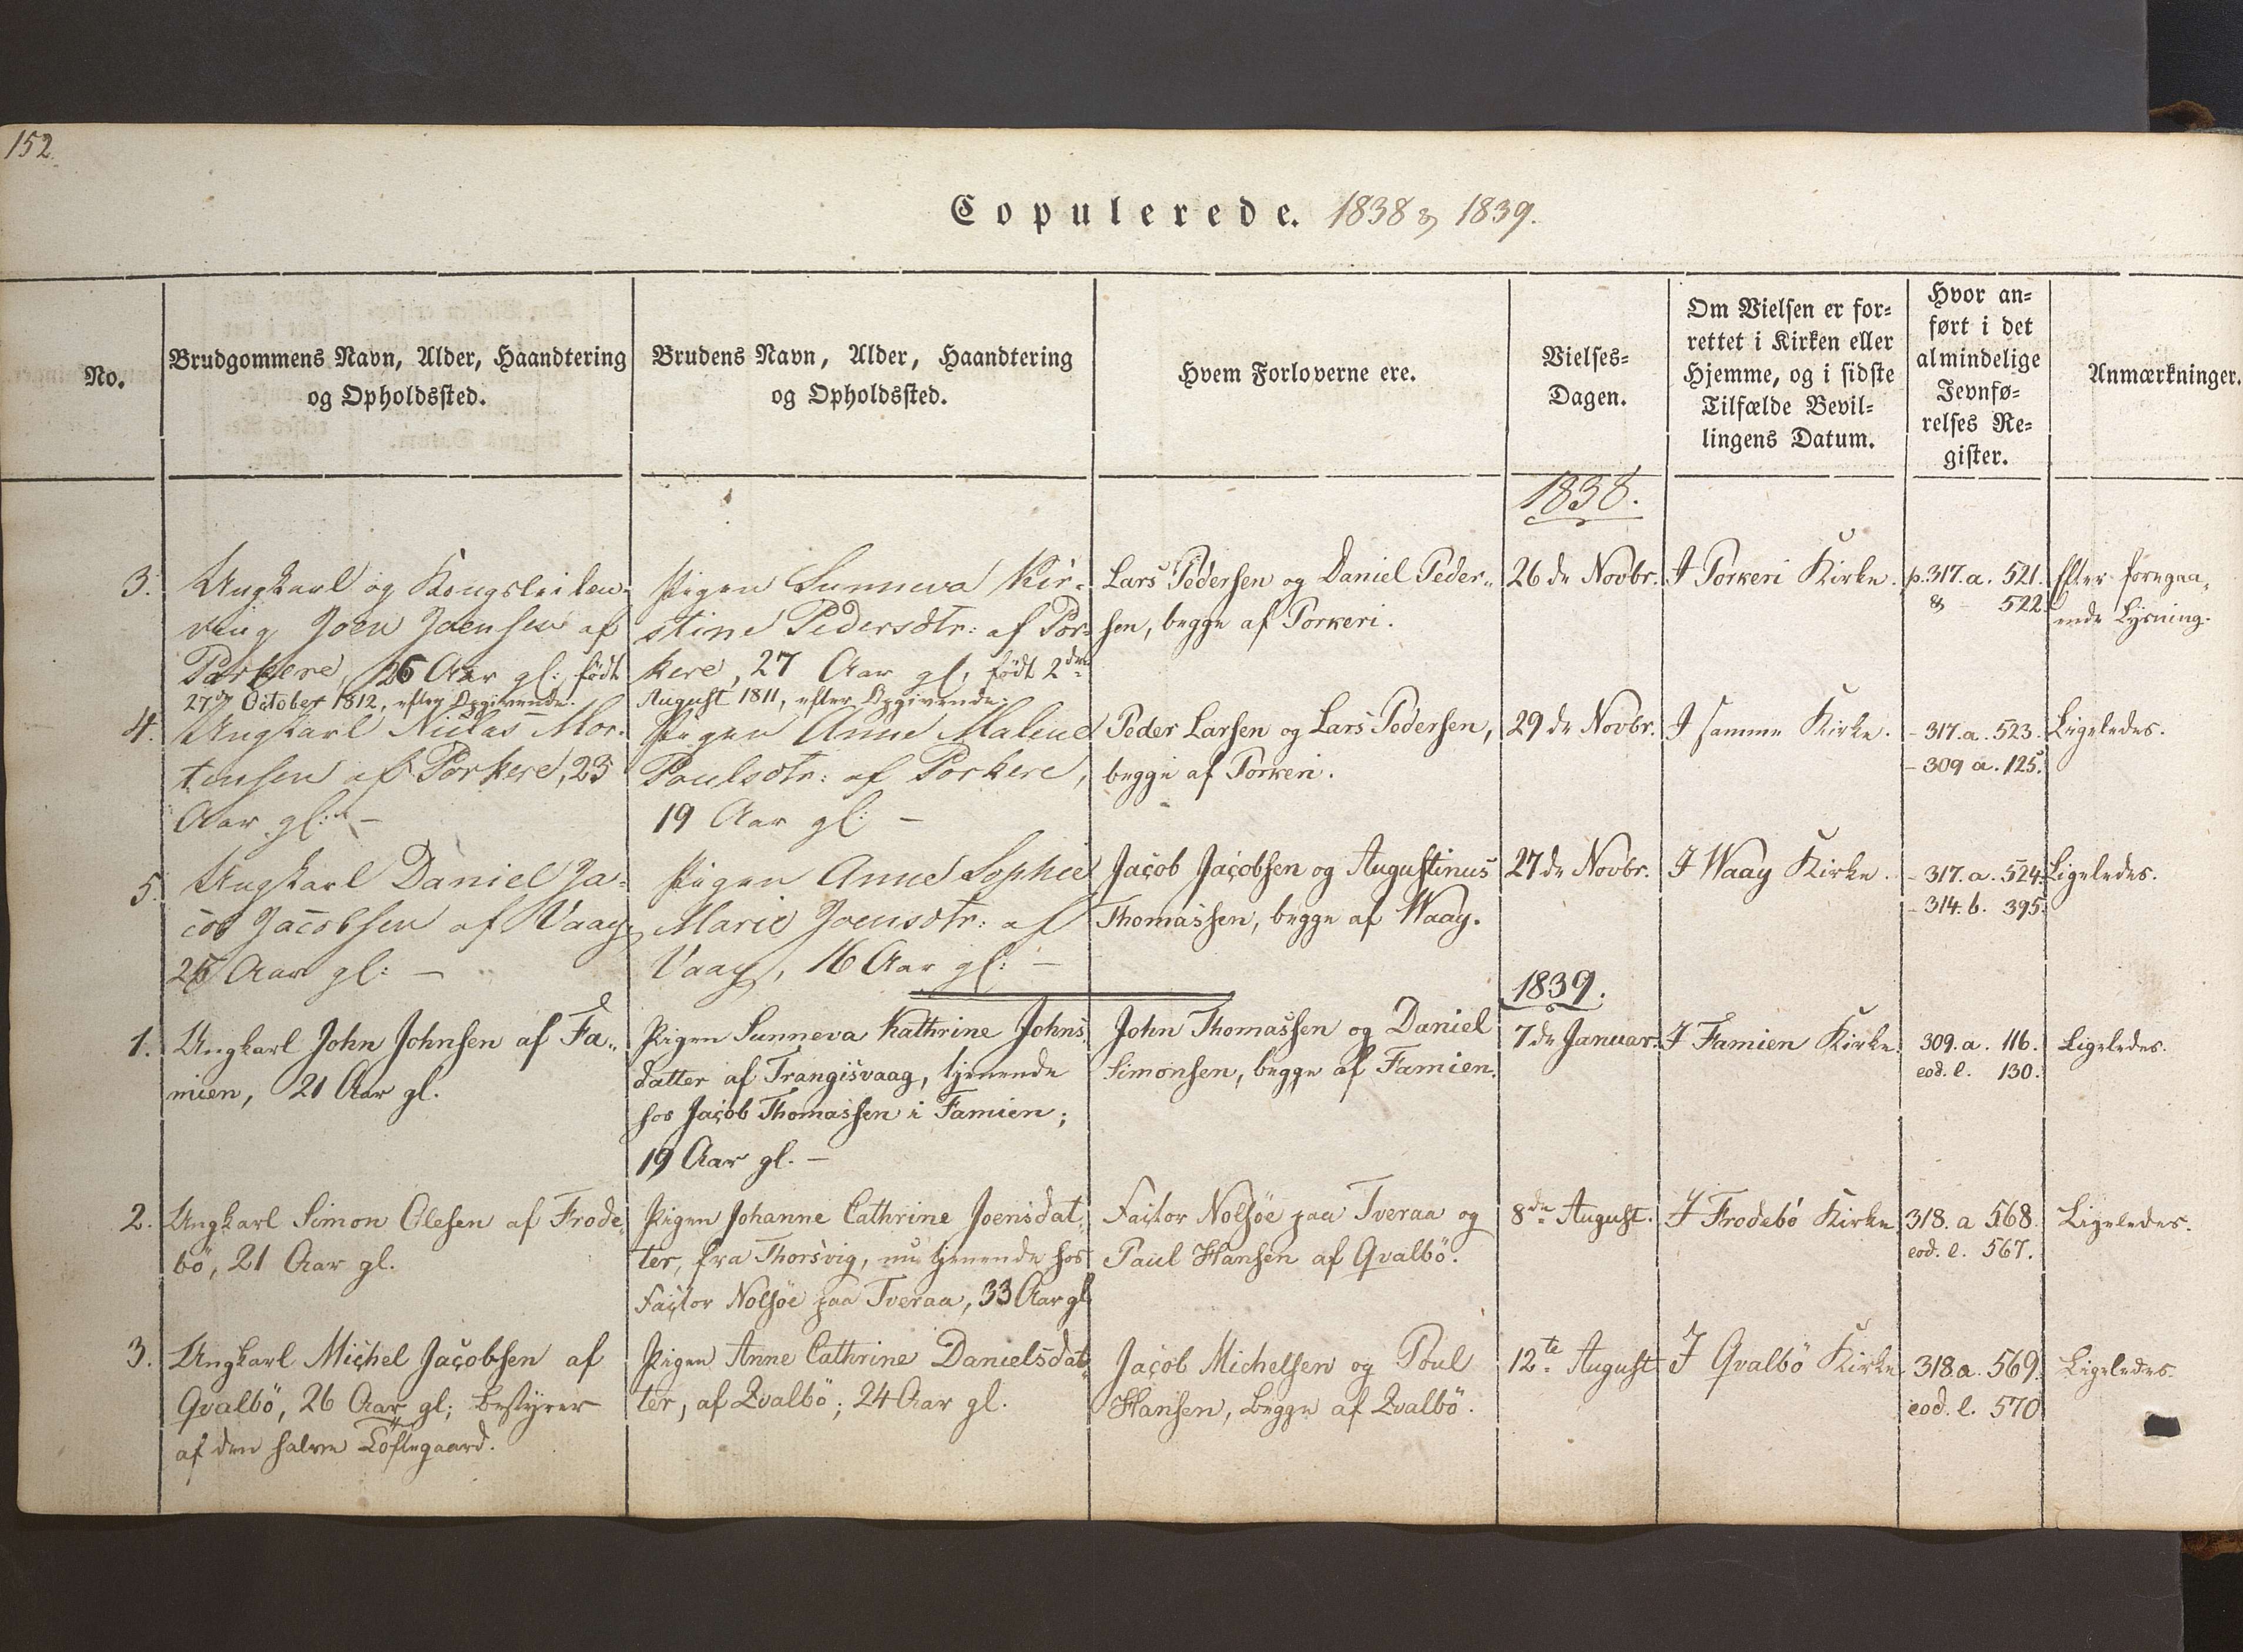 152.
Copulerede. 1838 & 1839.
No.
Brudgommens Navn, Alder, Haandtering
og Opholdssted.
Brudens Navn, Alder, Haandtering
og Opholdssted.
Hvem Forloverne ere.
Vielses-
Dagen.
Om Vielsen er for-
rettet i Kirken eller
Hjemme, og i sidste
Tilfælde Bevil-
lingens Datum.
Hvor an-
ført i det
almindelige
Jevnfø-
relses Re-
gister.
Anmærkninger.
1838.
3.
Ungkarl og Kongsleilen-
ding Joen Joensen af
Porkere, 26 Aar gl: født
27de October 1812, efter Opgivende.
Pigen Sunneva Kir-
stine Pedersdtr: af Por-
kere, 27 Aar gl, født 2den
August 1811, efter Opgivende.
Lars Pedersen og Daniel Peder-
sen, begge af Porkeri.
26de Novbr.
I Porkeri Kirke.
p. 317. a. 521.
& 522.
Efter foregaa-
ende Lysning.
4.
Ungkarl Niclas Mor-
tensen af Porkere, 23
Aar gl: –
Pigen Anne Malene
Poulsdtr: af Porkere,
19 Aar gl: –
Peder Larsen og Lars Pedersen,
begge af Porkeri.
29de Novbr.
I samme Kirke.
– 317. a. 523.
– 309 a. 125.
Ligeledes.
5.
Ungkarl Daniel Ja-
cob Jacobsen af Vaag,
25 Aar gl: –
Pigen Anne Sophie
Marie Joensdtr: af
Vaag, 16 Aar gl: –
Jacob Jacobsen og Augustinus
Thomassen, begge af Waag.
27de Novbr.
I Waag Kirke.
– 317. a. 524.
– 314. b. 395.
Ligeledes.
1839.
1.
Ungkarl John Johnsen af Fa-
mien, 21 Aar gl.
Pigen Sunneva Kathrine Johns-
datter af Trangisvaag, tjenende
hos Jacob Thomassen i Famien;
19 Aar gl. –
John Thomassen og Daniel
Simonsen, begge af Famien.
7de Januar.
I Famien Kirke.
309. a. 116.
eod. l. 130.
Ligeledes.
2.
Ungkarl Simon Olesen af Frode-
bö, 21 Aar gl.
Pigen Johanne Cathrine Joensdat-
ter, fra Thorsvig, nu tjenende hos
Factor Nolsöe paa Tveraa, 33 Aar gl.
Factor Nolsöe paa Tveraa og
Paul Hansen af Qvalbö.
8de August.
I Frodebö Kirke
318. a 568.
eod. l. 567.
Ligeledes.
3.
Ungkarl Michel Jacobsen af
Qvalbö, 26 Aar gl; bestyrer
af den halve Löftegaard.
Pigen Anne Cathrine Danielsdat-
ter, af Qvalbö; 24 Aar gl.
Jacob Michelsen og Poul
Hansen, begge af Qvalbö.
12te August
I Qvalbö Kirke
318. a. 569.
eod. l. 570
Ligeledes.